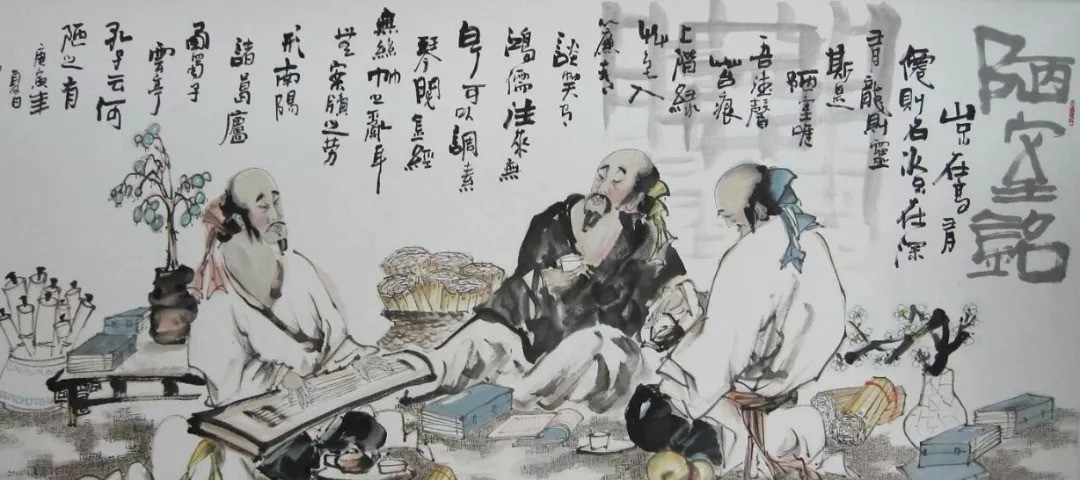 陋室銘
山不在高有
僊則名水不在深
有龍則靈
斯是
陋室唯
吾德馨
苔痕
上階綠
艸色入
簾青
談笑有
鴻儒往來無
白丁可以調素
琴閱金經
無絲竹之亂耳
无案牘之勞
形南陽
諸葛廬
西蜀子
雲亭
孔子云何
陋之有
庚寅年
夏日